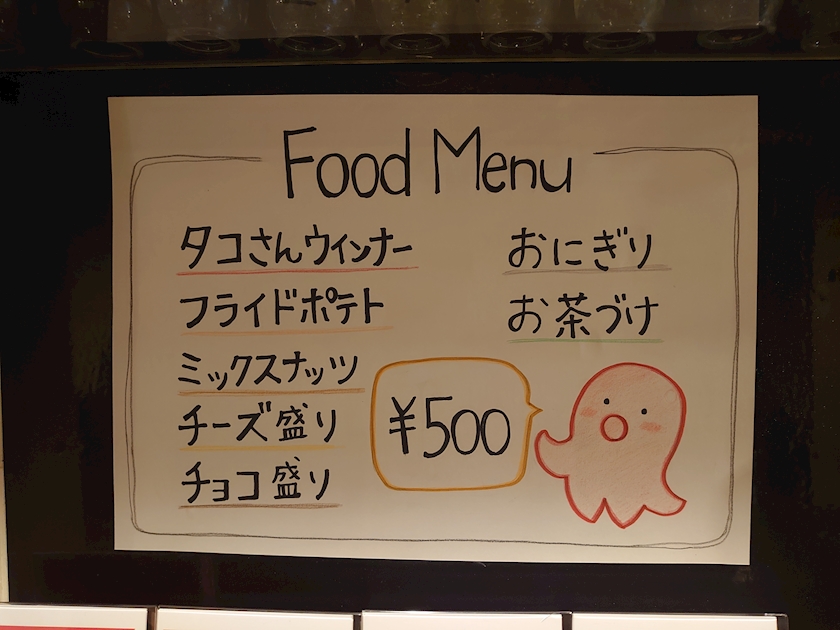 Food Menu
タコさんウィンナー
フライドポテト
ミックスナッツ
チーズ盛り
チョコ盛り
おにぎり
お茶づけ
¥500